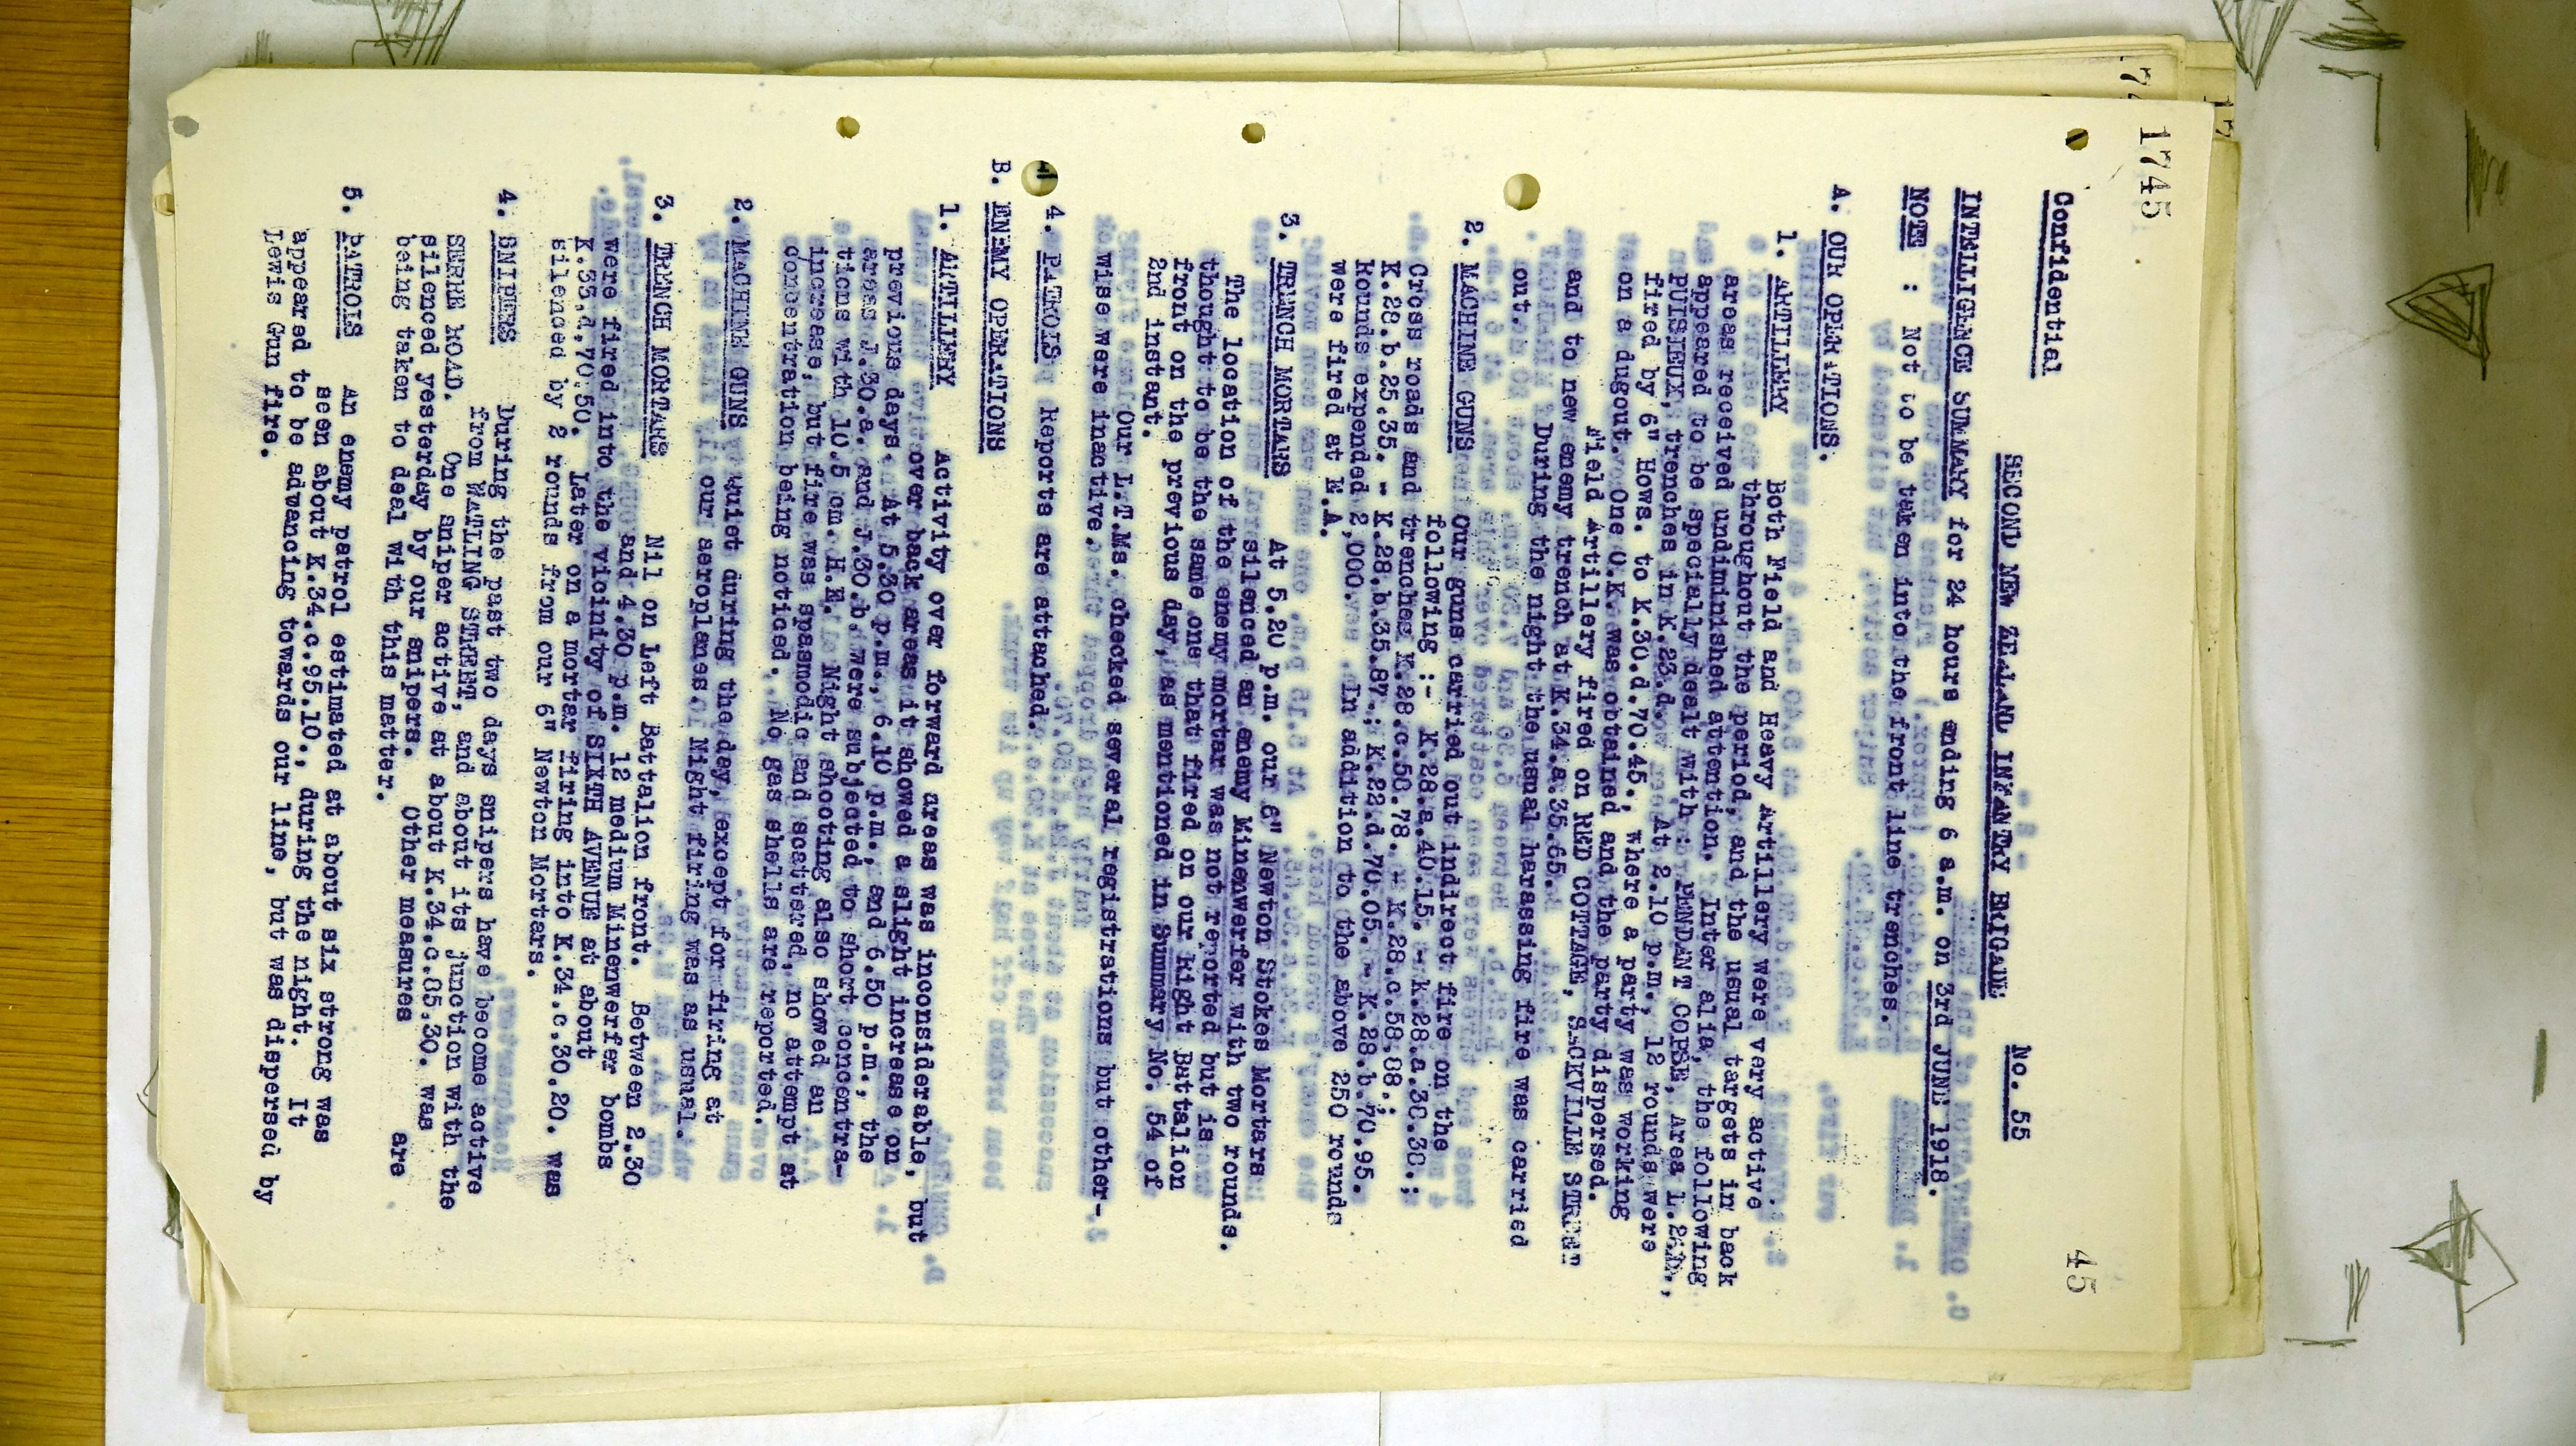 1745
45
Confidential
SECOND NEW ZEALAND INFANTRY BRIGADE No. 55
INTELLIGENCE SUMMARY for 24 hours ending 6 a.m. on 3rd JUNE 1918.
NOTE : Not to be taken into the front line trenches.
A. OUR OPERATIONS.
1. ARTILLERY Both Field and Heavy Artillery were very active
throughout the period, and the usual targets in back
areas received undiminished attention. Inter alia, the following
appeared to be specially dealt with :- PENDANT COPSE, Area
PUISIEUX, trenches in K.23.d. At 2.10 p.m. 12 rounds were
fired by 6" Hows. to K.30.d.70.45; where a party was working
on a dugout. One O.K. was obtained and the party dispersed.
Field Artillery fired on RED COTTAGE, SACKVILLE STREET
and to new enemy trench at K.34.a.35.65.
During the night the usual harassing fire was carried
out.
2. MACHINE GUNS Our guns carried out indirect fire on the
following :- K.28.a.40.15. - K.28.a.30.30.;
Cross roads and trenches K.28.c.50.78. - K.28.c.58.08.;
K.28.b.25.35. - K.28.b.35.87.; K.22.d.70.05. - K.28.b.70.95.
Rounds expended 2,000. In addition to the above 250 rounds
were fired at E.A.
3. TRENCH MORTARS At 5.20 p.m. our 6" Newton Stokes Mortars
silenced an enemy Minenwerfer with two rounds.
The location of the enemy mortar was not reported but is
thought to be the same one that fired on our Right Battalion
front on the previous day, as mentioned in Summary No. 54 of
2nd instant.
Our L.T.Ms. checked several registrations but other-
wise were inactive.
4. PATROLS Reports are attached.
B. ENEMY OPERATIONS
1. ARTILLERY Activity over forward areas was inconsiderable, but
over back areas it showed a slight increase on
previous days. At 5.30 p.m., 6.10 p.m., and 6.50 p.m., the
areas J.30.a. and J.30.b. were subjected to short concentra-
tions with 10.5 cm. H.E. Night shooting also showed an
increase, but fire was spasmodic and scattered, no attempt at
concentration being noticed. No gas shells are reported.
2. MACHINE GUNS Quiet during the day, except for firing at
our aeroplanes. Night firing was as usual.
3. TRENCH MORTARS Nil on Left Battalion front. Between 2.30
and 4.30 p.m. 12 medium Minenwerfer bombs
were fired into the vicinity of SIXTH AVENUE at about
K.33.d.70.50. Later on a mortar firing into K.34.c.30.20. was
silenced by 2 rounds from our 6" Newton Mortars.
4. SNIPERS During the past two days snipers have become active
from WATLING STREET, and about its junction with the
SERRE ROAD. One sniper active at about K.34.c.85.30. was
silenced yesterday by our snipers. Other measures are
being taken to deal with this matter.
5. PATROLS An enemy patrol estimated at about six strong was
seen about K.34.c.95.10., during the night. It
appeared to be advancing towards our line, but was dispersed by
Lewis Gun fire.